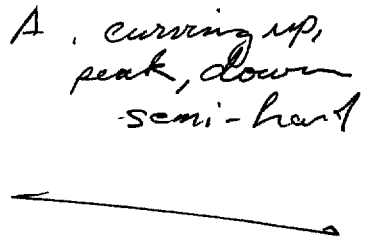 A. curving up,
peak, down
semi-hard